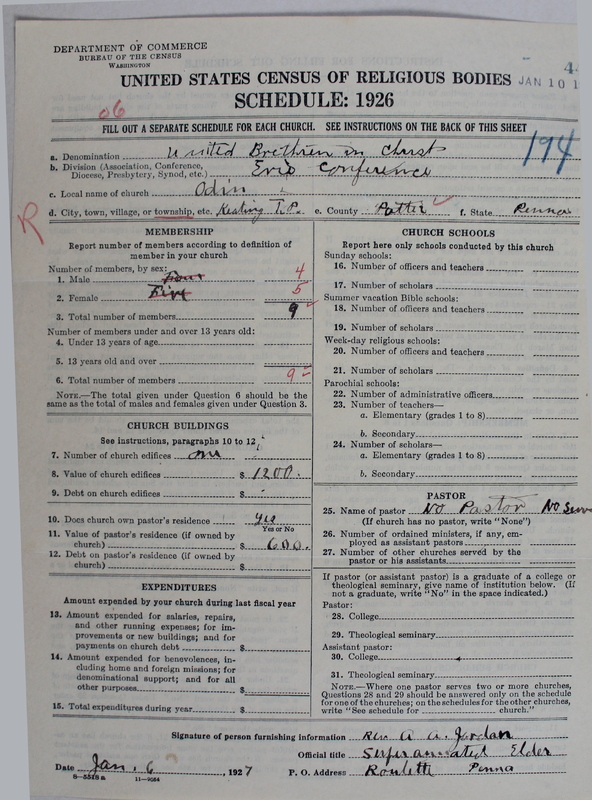 DEPARTMENT OF COMMERCE
BUREAU OF THE CENSUS
WASHINGTON
UNITED STATES CENSUS OF RELIGIOUS BODIES
JAN 10 1
4
SCHEDULE: 1926
06
FILL OUT A SEPARATE SCHEDULE FOR EACH CHURCH. SEE INSTRUCTIONS ON THE BACK OF THIS SHEET
194
a. Denomination United Brethren in Christ
b. Division (Association, Conference, Diocese, Presbytery, Synod, etc.) Erie Conference
c. Local name of church Odin
R
d. City, town, village, or township, etc. Keating T.P. e. County Potter f. State Penna
MEMBERSHIP
Report number of members according to definition of
member in your church
Number of members, by sex:
1. Male Four 4
2. Female Five 5
3. Total number of members 9
Number of members under and over 13 years old:
4. Under 13 years of age
5. 13 years old and over
6. Total number of members 9
NOTE.—The total given under Question 6 should be
same as the total of males and females given under Question 3.
CHURCH BUILDINGS
See instructions, paragraphs 10 to 12
7. Number of church edifices one
8. Value of church edifices $ 1200.
9. Debt on church edifices $ -
10. Does church own pastor's residence yes
Yes or No
11. Value of pastor's residence (if owned by
church) $ 600.
12. Debt on pastor's residence (if owned by
church) $
EXPENDITURES
Amount expended by your church during last fiscal year
13. Amount expended for salaries, repairs,
and other running expenses; for im-
provements or new buildings; and for
payments on church debt $
14. Amount expended for benevolences, in-
cluding home and foreign missions; for
denominational support; and for all
other purposes $
15. Total expenditures during year $
CHURCH SCHOOLS
Report here only schools conducted by this church
Sunday schools:
16. Number of officers and teachers
17. Number of scholars
Summer vacation Bible schools:
18. Number of officers and teachers
19. Number of scholars
Week-day religious schools:
20. Number of officers and teachers
21. Number of scholars
Parochial schools:
22. Number of administrative officers
23. Number of teachers—
a. Elementary (grades 1 to 8)
b. Secondary
24. Number of scholars—
a. Elementary (grades 1 to 8)
b. Secondary
PASTOR
25. Name of pastor No Pastor No Serv
(If church has no pastor, write "None")
26. Number of ordained ministers, if any, em-
ployed as assistant pastors
27. Number of other churches served by the
pastor or his assistants
If pastor (or assistant pastor) is a graduate of a college or
theological seminary, give name of institution below. (If
not a graduate, write "No" in the space indicated.)
Pastor:
28. College
29. Theological seminary
Assistant pastor:
30. College
31. Theological seminary
NOTE.—Where one pastor serves two or more churches,
Questions 28 and 29 should be answered only on the schedule
for one of the churches; on the schedules for the other churches,
write "See schedule for church."
Signature of person furnishing information Rev. A. A. Jordan
Official title Superannuated Elder
Date Jan. 6, 1927 P. O. Address Roulette Penna
8—5518a 11—9064